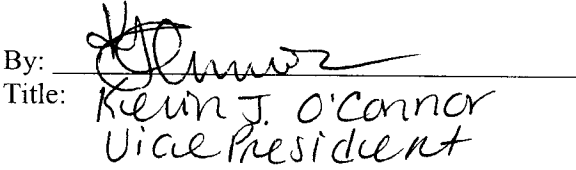 By:
Title: Kevin J. O'Connor
Vice President